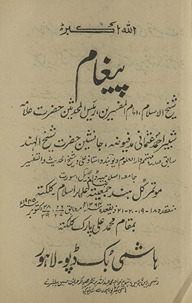 اللہ اکبر
پیغام
شیخ الاسلام، امام المفسرین، رئیس المحدثین حضرت علامہ
شبیر احمد عثمانی مدفیوضہ، جانشین حضرت شیخ الہند
سابق صدر مہتمم دارالعلوم دیوبند و استاذ اعلی و شیخ الحدیث والتفسیر
جامعہ اسلامیہ ڈابھیل سورت
موتمر کل ہند جمعیۃ علماء اسلام کلکتہ
منعقدہ ۱۸-۱۹-۲۰-۲۱
بمقام محمد علی پارک کلکتہ
ہاشمی بک ڈپو - لاہور